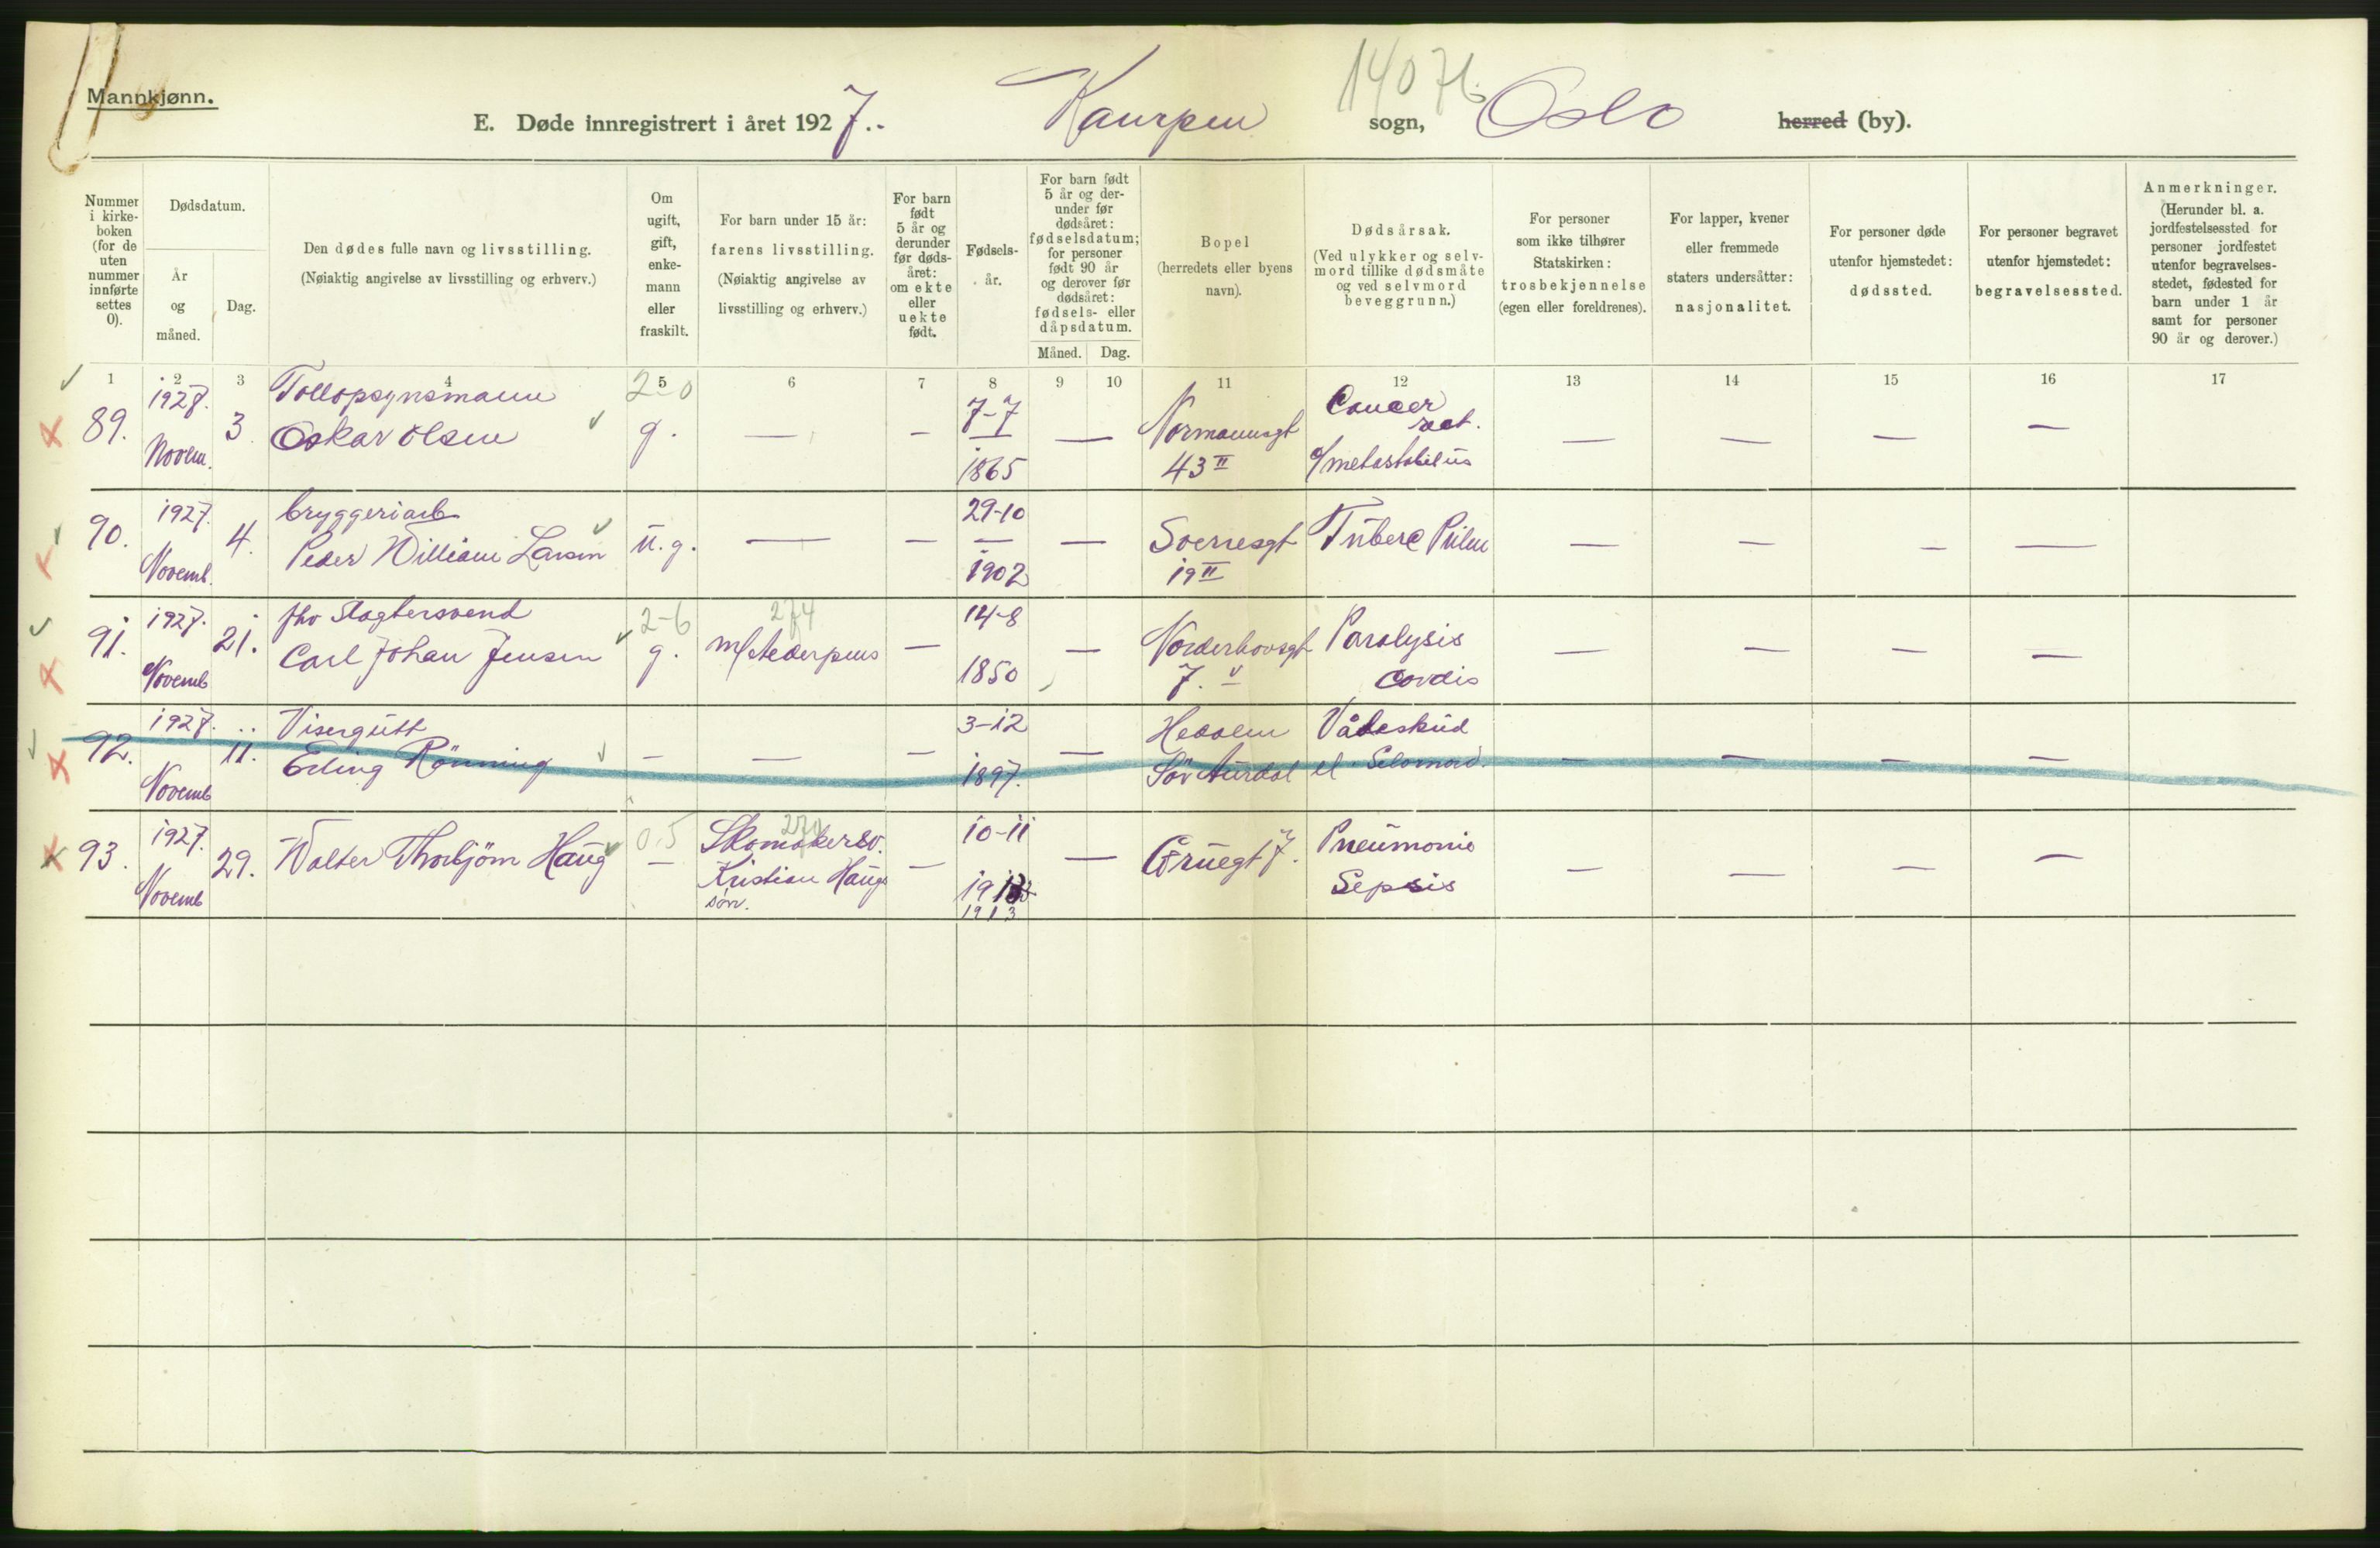 Mannkjønn.
14071.
E. Døde innregistrert i året 1927. Kampen sogn, Oslo herred (by).
Nummer i kirkeboken (for de uten nummer innførte settes 0).
Dødsdatum.
År og måned.
Dag.
Den dødes fulle navn og livsstilling.
(Nøiaktig angivelse av livsstilling og erhverv.)
Om ugift, gift, enkemann eller fraskilt.
For barn under 15 år:
farens livsstilling.
(Nøiaktig angivelse av livsstilling og erhverv.)
For barn født 5 år og derunder før dødsåret: om ekte eller uekte født.
Fødselsår.
For barn født 5 år og derunder før dødsåret: fødselsdatum; for personer født 90 år og derover før dødsåret: fødsels- eller dåpsdatum.
Måned. Dag.
Bopel
(herredets eller byens navn).
Dødsårsak.
(Ved ulykker og selvmord tillike dødsmåte og ved selvmord beveggrunn.)
For personer som ikke tilhører Statskirken:
trosbekjennelse
(egen eller foreldrenes).
For lapper, kvener eller fremmede staters undersåtter:
nasjonalitet.
For personer døde utenfor hjemstedet:
dødssted.
For personer begravet utenfor hjemstedet:
begravelsessted.
Anmerkninger.
(Herunder bl. a. jordfestelsessted for personer jordfestet utenfor begravelsesstedet, fødested for barn under 1 år samt for personer 90 år og derover.)
1 2 3 4 5 6 7 8 9 10 11 12 13 14 15 16 17
89. 1927. Novem. 3.
Tollopsynsmann
Oskar Olsen
2-0
g. — — 7-7
1865 —
Normannsgt
43 II
Cancer
rect.
c/metastabilus
— — — —
90. 1927. Novemb. 4.
bryggeriarb
Peder William Larsen
u.g. — — 29-10
—
1902 —
Sverresgt
19 II
Tuberc Pulm
— — — —
91. 1927. Novemb 21.
fhv Slagtersvend
Carl Johan Jensen
2-6
g.
274
m/Aederpens
— 14-8
1850 —
Norderhovsgt
7. V
Paralysis
Cordis
— — — —
92. 1927. Novemb 11.
Visergutt
Erling Rönning
— — — 3-12
1897. —
Hedalen
Sör Aurdal
Vådeskud
el. Selvmord.
— — — —
93. 1927. Novemb 29.
Walter Thorbjörn Haug
0.5
—
274
Skomakersv.
Kristian Haugs
sön.
— 10-11
1913
1913 —
Gruegt 7.
Pneumonie
Sepsis
— — — —